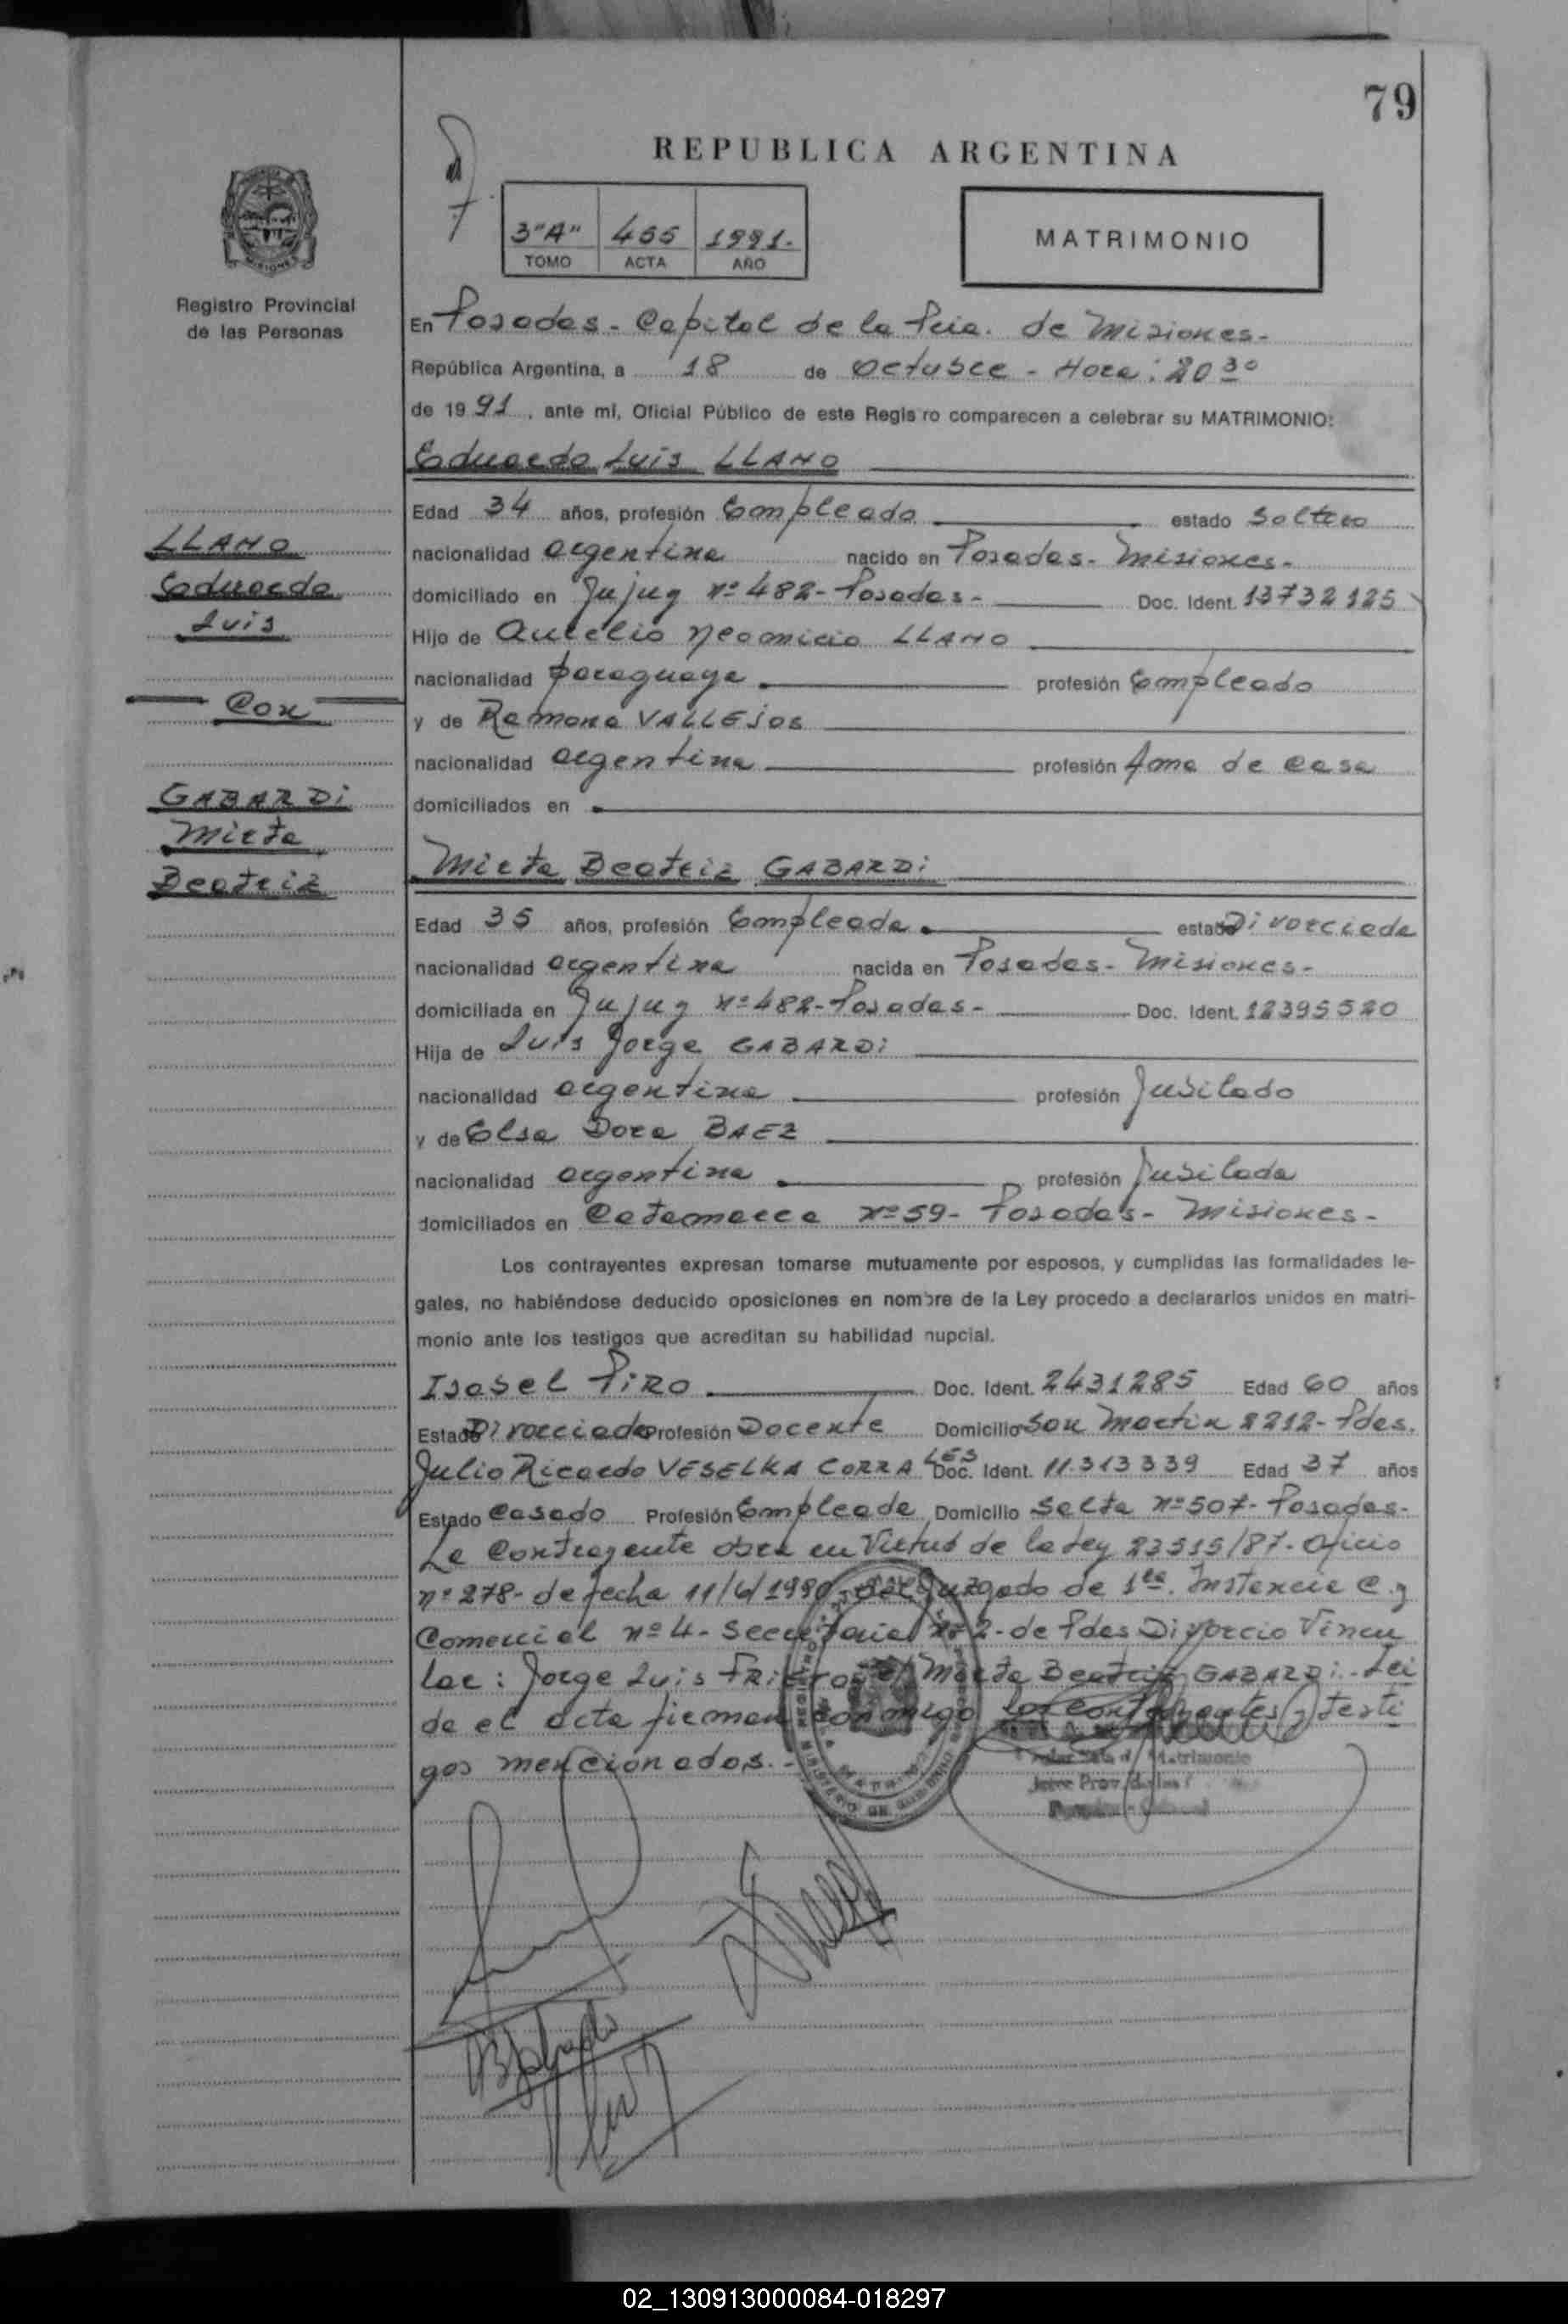 79
REPUBLICA ARGENTINA
3"A" 455 1991.
TOMO ACTA AÑO
MATRIMONIO
MISIONES
Registro Provincial
de las Personas
En Posadas - Capital de la Pcia. de Misiones-
República Argentina, a 18 de Octubre - Hora: 20 30
de 19 91, ante mí, Oficial Público de este Regis ro comparecen a celebrar su MATRIMONIO:
Eduardo Luis LLANO
Edad 34 años, profesión Empleado estado Soltero
LLANO
nacionalidad argentina nacido en Posadas- Misiones-
Eduardo
domiciliado en Jujuy nº 482- Posadas- Doc. Ident. 13732125
Luis
Hijo de Aurelio Neomicio LLANO
nacionalidad paraguaya profesión Empleado
Con
y de Ramona VALLEJOS
nacionalidad argentina profesión Ama de casa
GABARDI
domiciliados en
Mirta
Beatriz
Mirta Beatriz GABARDI
Edad 35 años, profesión Empleada estado Divorciada
nacionalidad argentina nacida en Posadas- Misiones-
domiciliada en Jujuy nº 482- Posadas- Doc. Ident. 12395520
Hija de Luis Jorge GABARDI
nacionalidad argentina profesión Jubilado
y de Elsa Dora BAEZ
nacionalidad argentina profesión Jubilada
domiciliados en Catamarca nº 59- Posadas- Misiones-
Los contrayentes expresan tomarse mutuamente por esposos, y cumplidas las formalidades le-
gales, no habiéndose deducido oposiciones en nombre de la Ley procedo a declararlos unidos en matri-
monio ante los testigos que acreditan su habilidad nupcial.
Isabel PIRO Doc. Ident. 2431285 Edad 60 años
Estado Divorciada Profesión Docente Domicilio San Martin 2212- Pdas.
Julio Ricardo VESELKA CORRALES Doc. Ident. 11.313339 Edad 37 años
Estado Casado Profesión Empleado Domicilio Salta nº 507- Posadas-
La Contrayente obra en Virtud de la Ley 23515/87- Oficio
nº 278- de fecha 11/6/1990 del Juzgado de 1ra. Instancia C. y
Comercial nº 4- Secretaria nº 2- de Pdas Divorcio Vincu
lar: Jorge Luis c/ Mirta Beatriz GABARDI.- Lei
da el acta firman conmigo los contrayentes y testi
gos mencionados.-
02_130913000084-018297